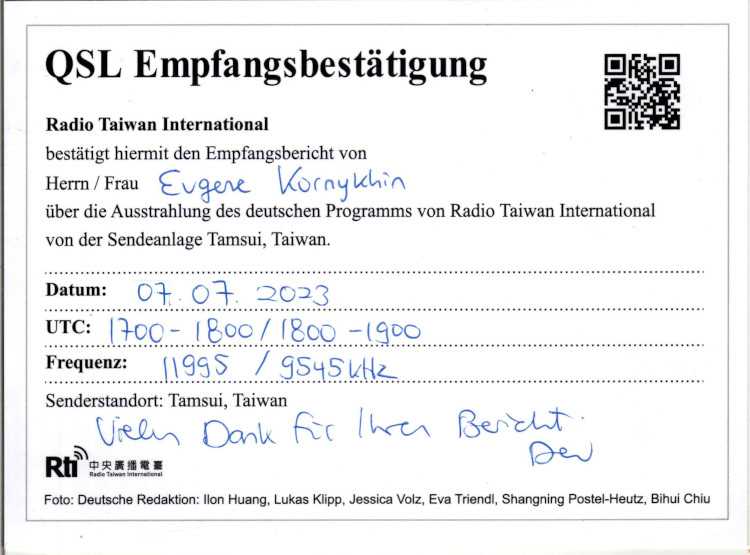 QSL Empfangsbestätigung
Radio Taiwan International
bestätigt hiermit den Empfangsbericht von
Herrn / Frau Evgene Kornykhin
über die Ausstrahlung des deutschen Programms von Radio Taiwan International
von der Sendeanlage Tamsui, Taiwan.
Datum: 07.07.2023
UTC: 1700 - 1800 / 1800 - 1900
Frequenz: 11995 / 9545 kHz
Senderstandort: Tamsui, Taiwan
Vielen Dank für Ihren Bericht.
Rti 中央廣播電臺
Radio Taiwan International
Foto: Deutsche Redaktion: Ilon Huang, Lukas Klipp, Jessica Volz, Eva Triendl, Shangning Postel-Heutz, Bihui Chiu